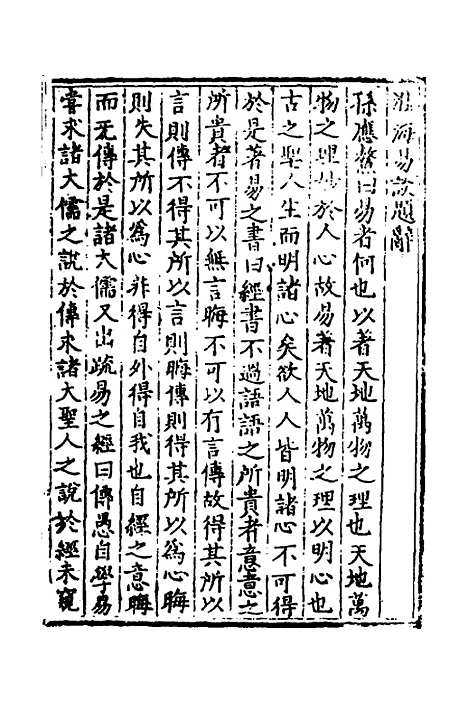 淮海易談題辭
孫應鰲曰易者何也以著天地萬物之理也天地萬
物之理妙於人心故易著天地萬物之理以明心也
古之聖人生而明諸心矣欲人人皆明諸心不可得
於是著易之書曰經書不過語語之所貴者意意之
所貴者不可以無言晦不可以有言傳故得其所以
言則傳不得其所以言則晦傳則得其所以為心晦
則失其所以為心非得自外得自我也自經之意晦
而无傳於是諸大儒又出疏易之經曰傳愚自學易
嘗求諸大儒之說於傳求諸大聖人之說於經未窺